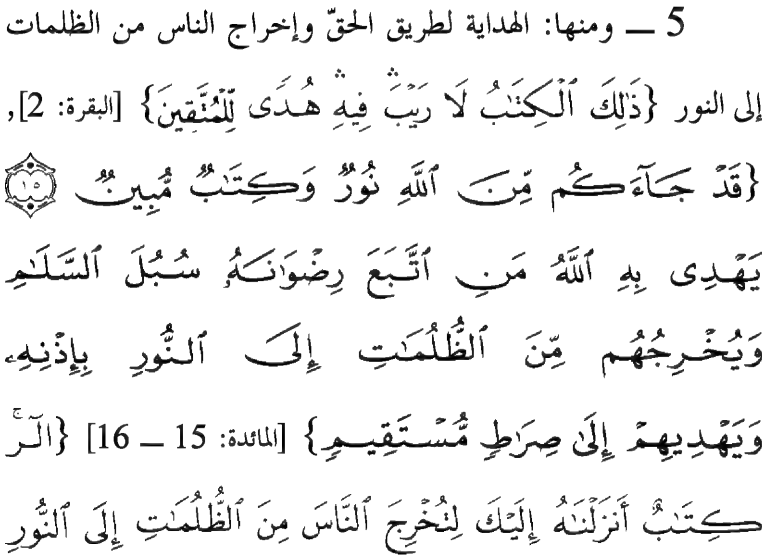 5 ــ ومنها: الهداية لطريق الحقّ وإخراج الناس من الظلمات
إلى النور {ذَٰلِكَ ٱلْكِتَٰبُ لَا رَيْبَۛ فِيهِۛ هُدًى لِّلْمُتَّقِينَ} [البقرة: 2],
{قَدْ جَآءَكُم مِّنَ ٱللَّهِ نُورٌ وَكِتَٰبٌ مُّبِينٌ ١٥
يَهْدِى بِهِ ٱللَّهُ مَنِ ٱتَّبَعَ رِضْوَٰنَهُۥ سُبُلَ ٱلسَّلَٰمِ
وَيُخْرِجُهُم مِّنَ ٱلظُّلُمَٰتِ إِلَى ٱلنُّورِ بِإِذْنِهِۦ
وَيَهْدِيهِمْ إِلَىٰ صِرَٰطٍ مُّسْتَقِيمٍ} [المائدة: 15 ــ 16] {الٓرۚ
كِتَٰبٌ أَنزَلْنَٰهُ إِلَيْكَ لِتُخْرِجَ ٱلنَّاسَ مِنَ ٱلظُّلُمَٰتِ إِلَى ٱلنُّورِ